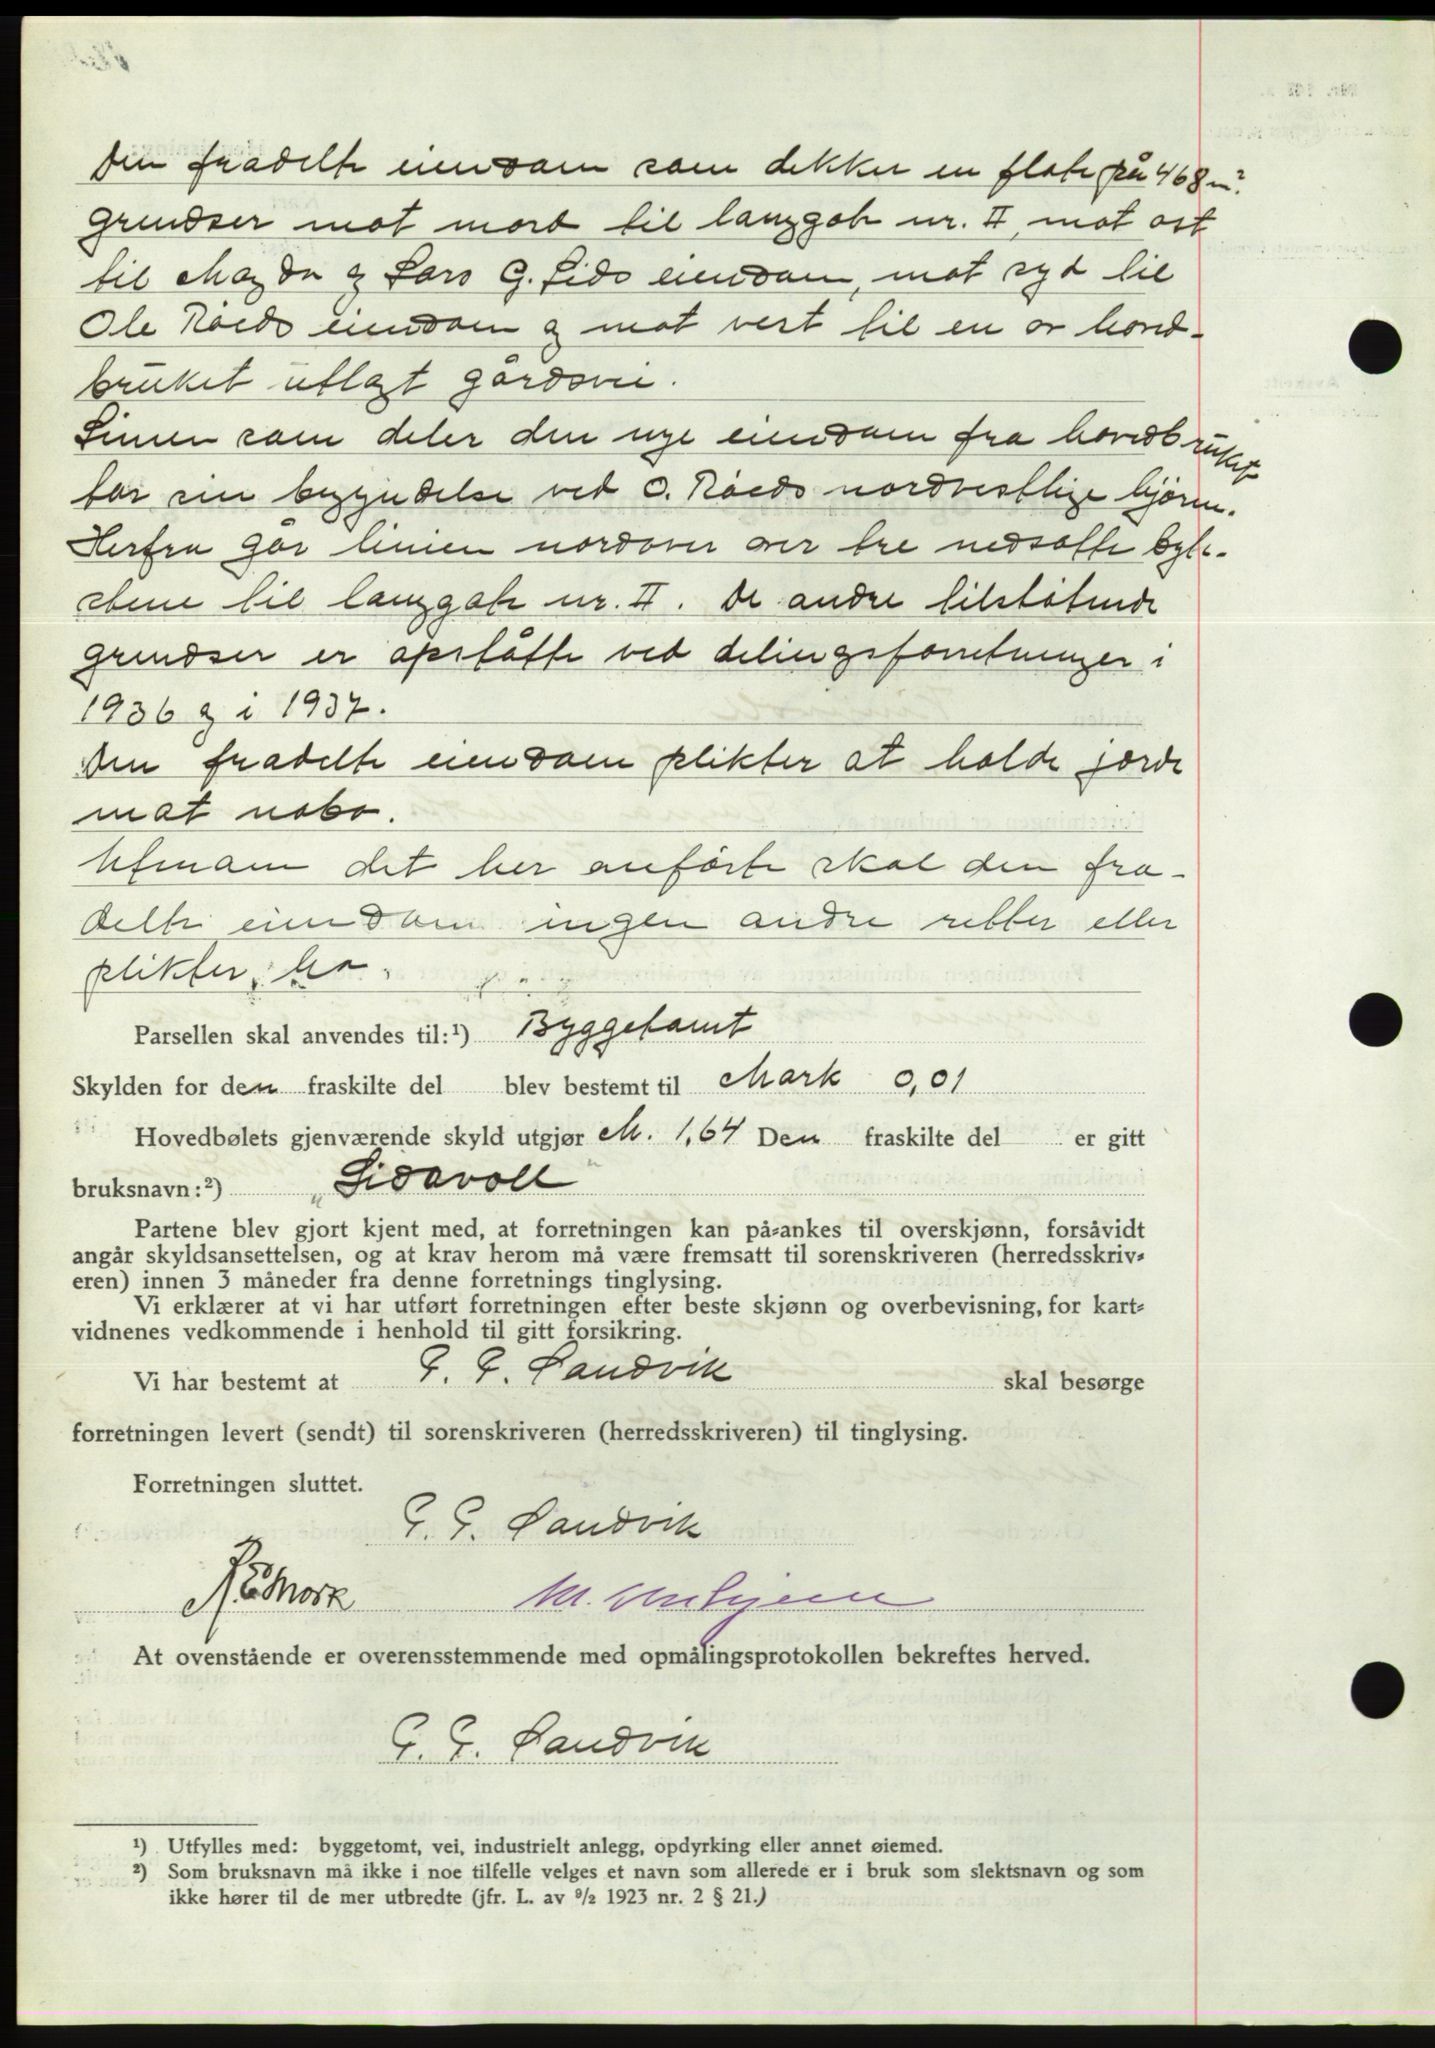 Den fradelte eiendom som dekker en flate på 468 m².
grendser mot nord til langgate nr. II, mot ost
til Magda og Lars G. Lids eiendom, mot syd til
Ole Råeds eiendom og mot vest til en av hoved-
bruket utlagt gårdsvei.
Linien som deler den nye eiendom fra hovedbruket
tar sin begyndelse ved O. Råeds nordvestlige hjörne.
Herfra går linien nordover over tre nedsatte byte-
stene til langgate nr. II. De andre tilstötende
grendser er opståtte ved delingsforretninger i
1936 og i 1937.
Den fradelte eiendom plikter at holde jærde
mot nabo.
Utenom det her anförte skal den fra-
delte eiendom ingen andre retter eller
plikter ha.
Parsellen skal anvendes til:¹) Byggetomt
Skylden for den fraskilte del blev bestemt til Mark 0,01
Hovedbølets gjenværende skyld utgjør M. 1,64 Den fraskilte del er gitt
bruksnavn:²) „Lidavoll"
Partene blev gjort kjent med, at forretningen kan på-ankes til overskjønn, forsåvidt
angår skyldsansettelsen, og at krav herom må være fremsatt til sorenskriveren (herredsskriv-
eren) innen 3 måneder fra denne forretnings tinglysing.
Vi erklærer at vi har utført forretningen efter beste skjønn og overbevisning, for kart-
vidnenes vedkommende i henhold til gitt forsikring.
Vi har bestemt at G. G. Sandvik skal besørge
forretningen levert (sendt) til sorenskriveren (herredsskriveren) til tinglysing.
Forretningen sluttet.
G. G. Sandvik
R. E. Mork M.
At ovenstående er overensstemmende med opmålingsprotokollen bekreftes herved.
G. G. Sandvik
¹) Utfylles med: byggetomt, vei, industrielt anlegg, opdyrking eller annet øiemed.
²) Som bruksnavn må ikke i noe tilfelle velges et navn som allerede er i bruk som slektsnavn og som
ikke hører til de mer utbredte (jfr. L. av ⁹/₂ 1923 nr. 2 § 21.)